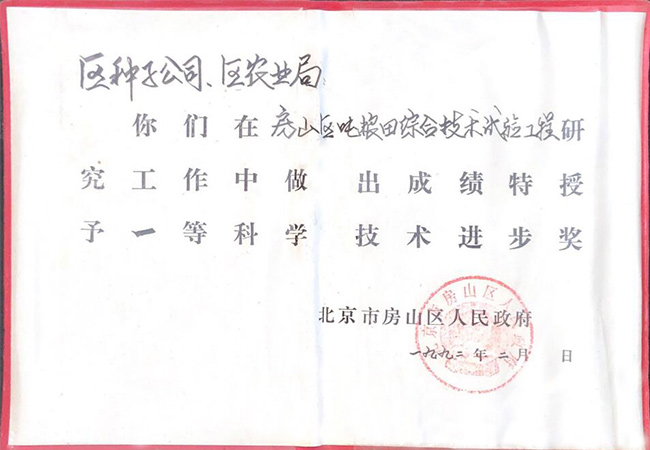 区种子公司、区农业局:
你们在房山区吨粮田综合技术试验工程研
究工作中做出成绩特授
予一等科学技术进步奖
北京市房山区人民政府
一九九二年二月 日